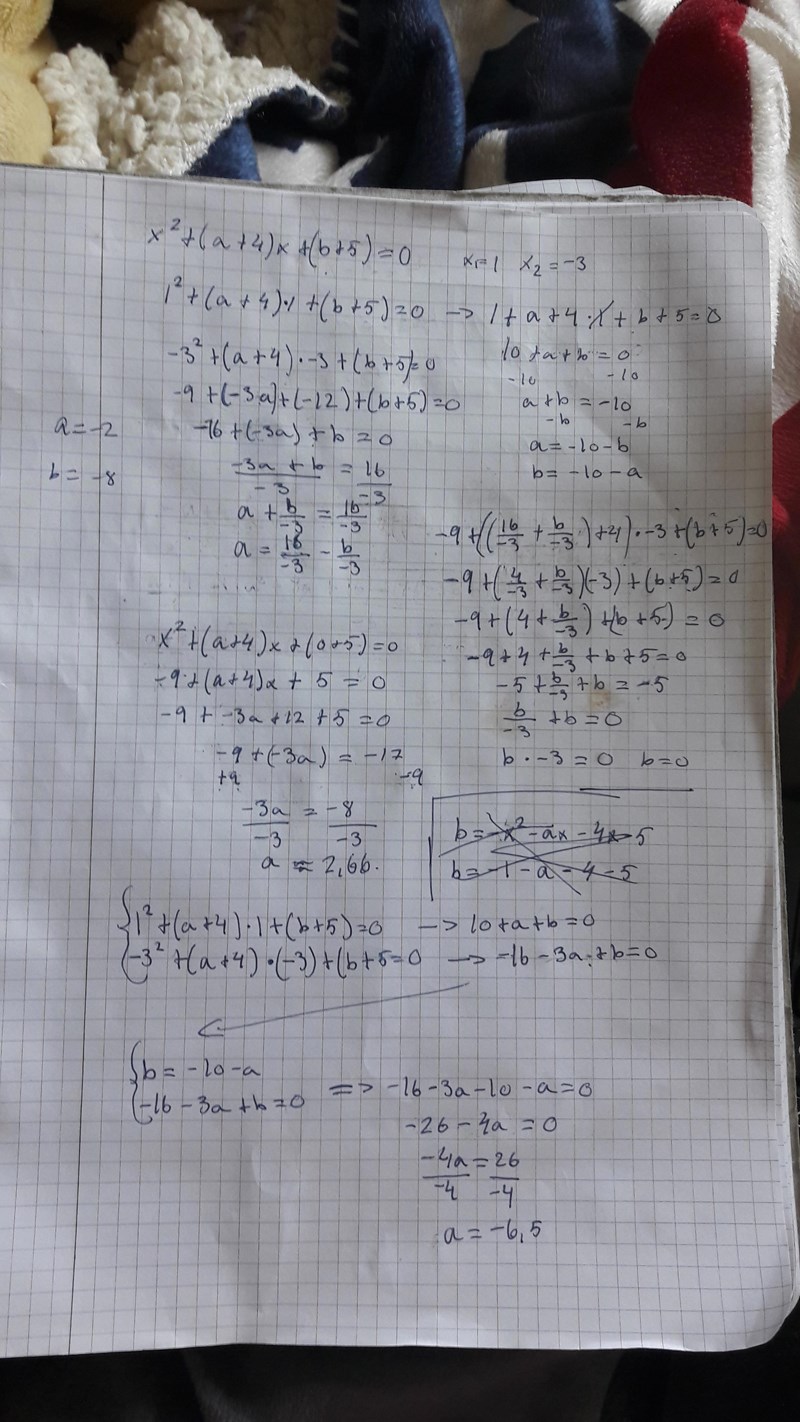 x²+(a+4)x+(b+5)=0   x₁=1   x₂=-3
1²+(a+4)·1+(b+5)=0 -> 1+a+4·1+b+5=0
-3²+(a+4)·-3+(b+5)=0
10+a+b=0
-10   -10
-9+(-3a)+(-12)+(b+5)=0
a+b=-10
-b   -b
a=-2
-16+(-3a)+b=0
a=-10-b
b=-8
-3a+b/-3 = 16/-3
b=-10-a
a+b/-3=16/-3
a=16/-3-b/-3
-9+((16/-3+b/-3)+4)·-3+(b+5)=0
-9+(4/-3+b/-3)(-3)+(b+5)=0
-9+(4+b/-3)+(b+5)=0
-9+4+b/-3+b+5=0
-5+b/-3+b=-5
b/-3+b=0
b·-3=0   b=0
x²+(a+4)x+(0+5)=0
-9+(a+4)x+5=0
-9+-3a+12+5=0
-9+(-3a)=-17
+9   -9
-3a/-3=-8/-3
a=2,66.
b=-x²-ax-4x-5
b=-1-a-4-5
1²+(a+4)·1+(b+5)=0 -> 10+a+b=0
-3²+(a+4)·(-3)+(b+5=0 -> -16-3a+b=0
b=-10-a
-16-3a+b=0 => -16-3a-10-a=0
-26-4a=0
-4a/-4=26/-4
a=-6,5